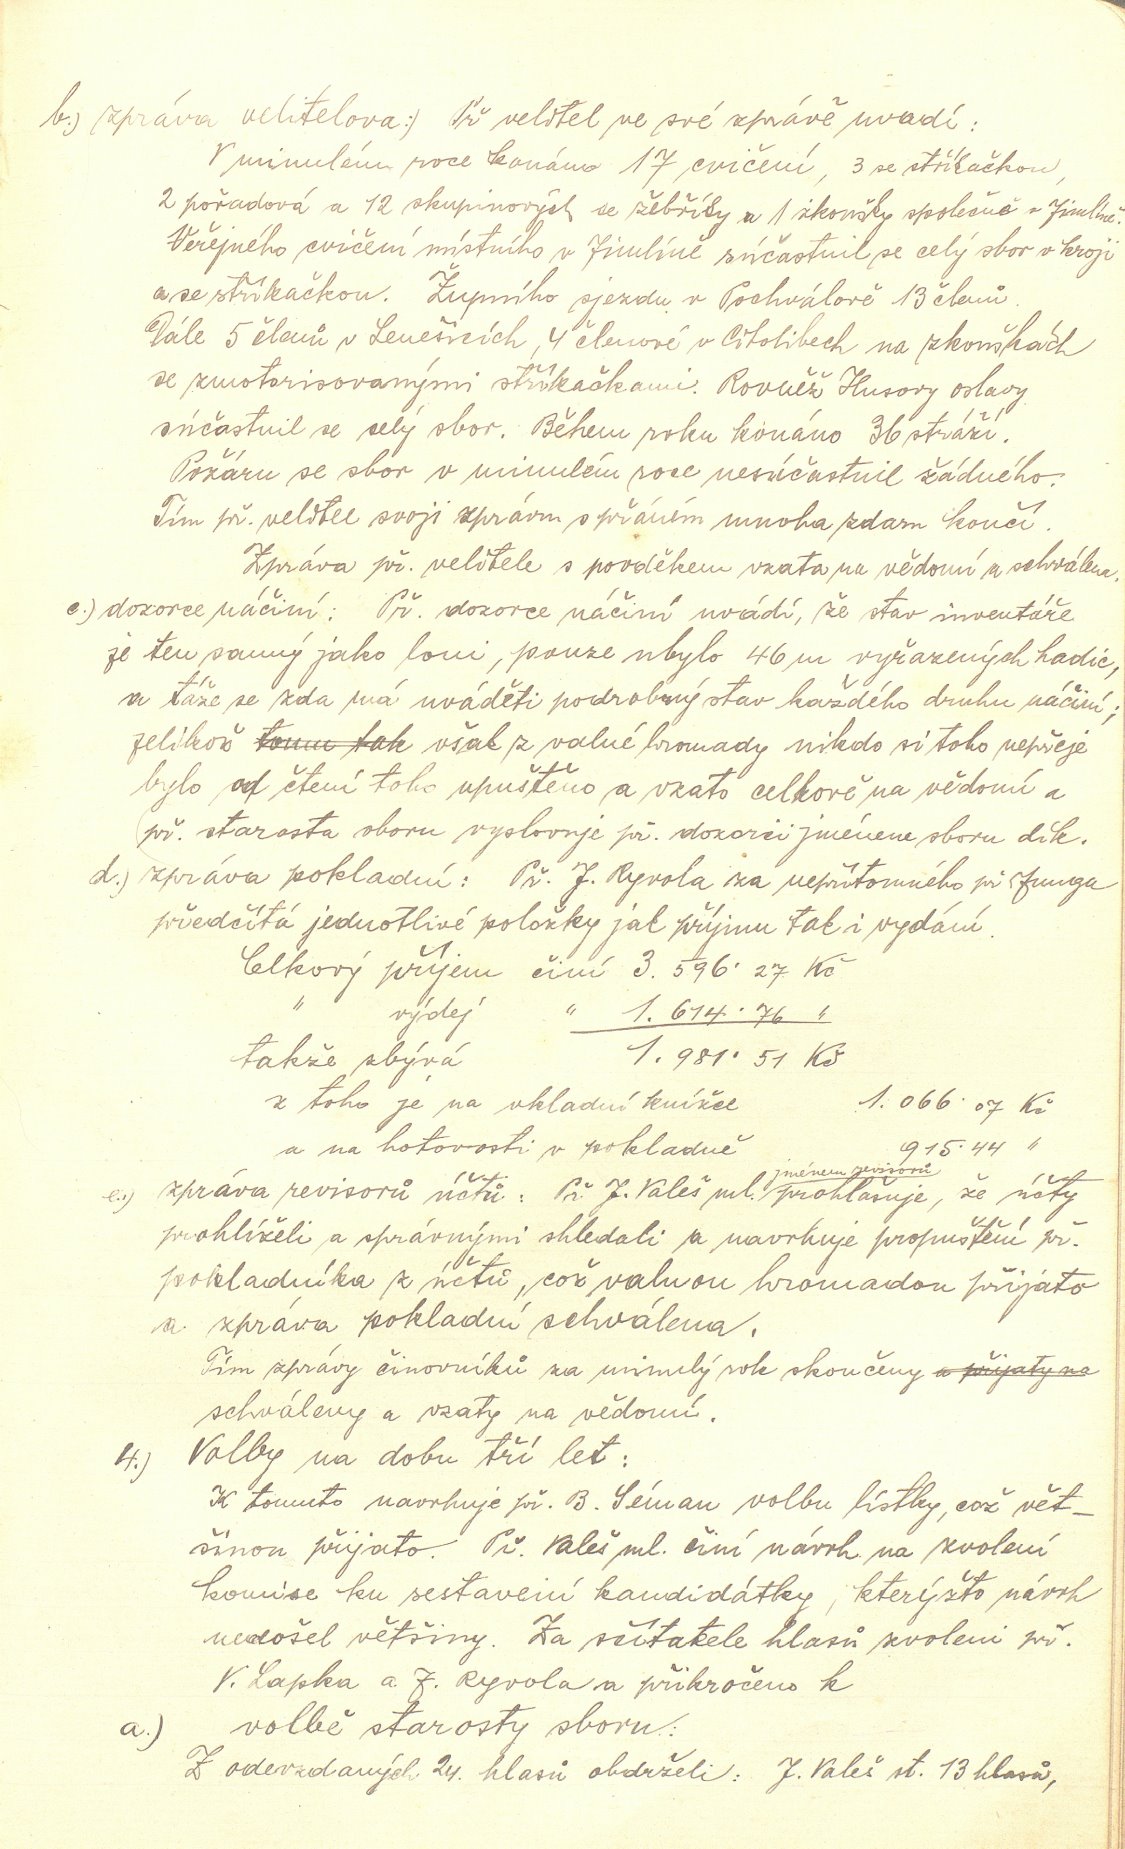 b.) zpráva velitelova:) Př velitel ve své zprávě uvadí:
V minulém roce konáno 17 cvičení, 3 se stříkačkou,
2 pořadová a 12 skupinových se žebříky a 1 zkoušky společně v Jimlíně.
Veřejného cvičení místního v Jimlíně súčastnil se celý sbor v kroji
a se stříkačkou. Župního sjezdu v Pochválově 13 členů.
Dále 5 členů v Lenešicích, 4 členové v Citolibech na zkouškách
se zmotorisovanými stříkačkami. Rovněž Husovy oslavy
súčastnil se celý sbor. Během roku konáno 36 stráží.
Požáru se sbor v minulém roce nesúčastnil žádného.
Tím př. velitel svoji zprávu s přáním mnoha zdaru končí.
Zpráva př. velitele s povděkem vzata na vědomí a schválena.
c.) dozorce náčiní: Př. dozorce náčiní uvádí, že stav inventáře
je ten samý jako loni, pouze ubylo 46 m vyřazených hadic,
a táže se zda má uváděti podrobný stav každého druhu náčiní;
jelikož tomu tak však z valné hromady nikdo si toho nepřeje
bylo od čtení toho upuštěno a vzato celkově na vědomí a
př. starosta sboru vyslovuje př. dozorci jménene sboru dík.
d.) zpráva pokladní: Př. J. Ryvola za nepřítomného př Funga
předčítá jednotlivé položky jak příjmu tak i vydání.
Celkový příjem činí 3.596·27 Kč
" výdej " 1.614·76 "
takže zbývá 1.981·51 Kč
z toho je na vkladní knížce 1.066·07 Kč
a na hotovosti v pokladně 915·44 "
jménem revisorů
e.) zpráva revisorů účtů: Př J. Valeš ml. prohlašuje, že účty
prohlíželi a správnými shledali a navrhuje propuštění př.
pokladníka z účtů, což valnou hromadou přijato
a zpráva pokladní schválena.
Tím zprávy činovníků za minulý rok skončeny a přijaty na
schváleny a vzaty na vědomí.
4.) Volby na dobu tří let:
K tomuto navrhuje př. B. Séman volbu lístky, což vět-
šinou přijato. Př. Valeš ml. činí návrh na zvolení
komise ku sestavení kandidátky, kterýžto návrh
nedošel většiny. Za sčítatele hlasů zvoleni př.
V. Lapka a J. Ryvola a přikročeno k
a.) volbě starosty sboru:
Z odevzdaných 24. hlasů obdrželi: J. Valeš st. 13 hlasů,